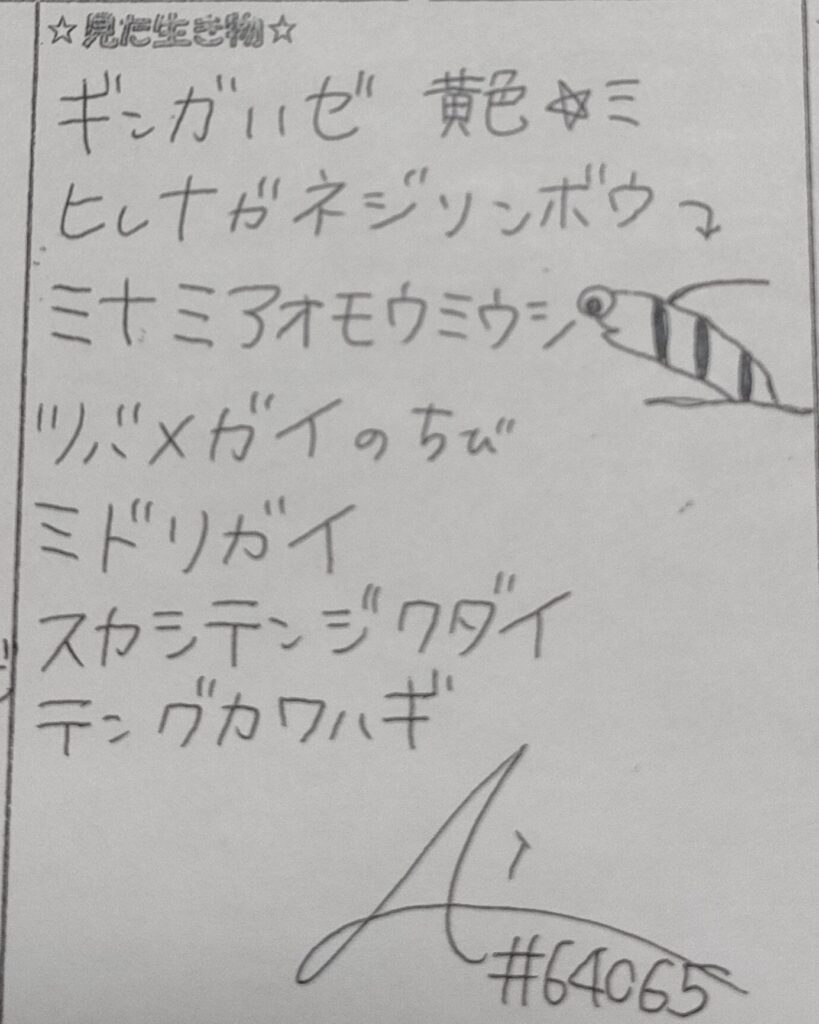 ☆見た生き物☆
ギンガハゼ 黄色☆ミ
ヒレナガネジリンボウ
ミナミアオモウミウシ
ツバメガイのちび
ミドリガイ
スカシテンジクダイ
テングカワハギ
Ai
#64065